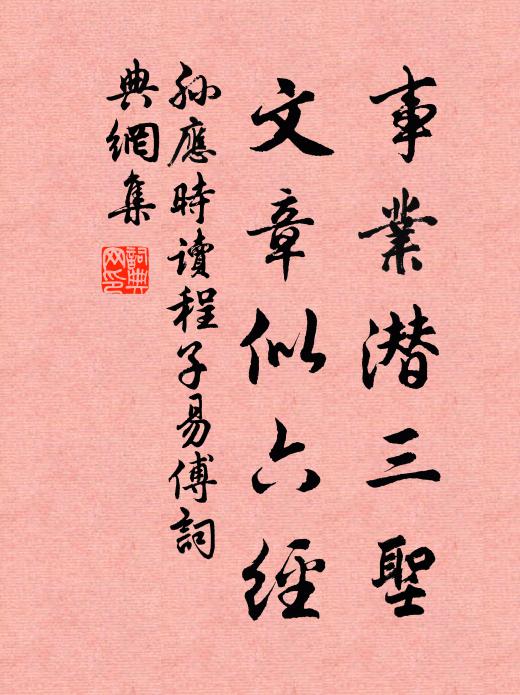 事業潜三聖
文章似六經
孙應時讀程子易傅詞
典網集
詞典
网印